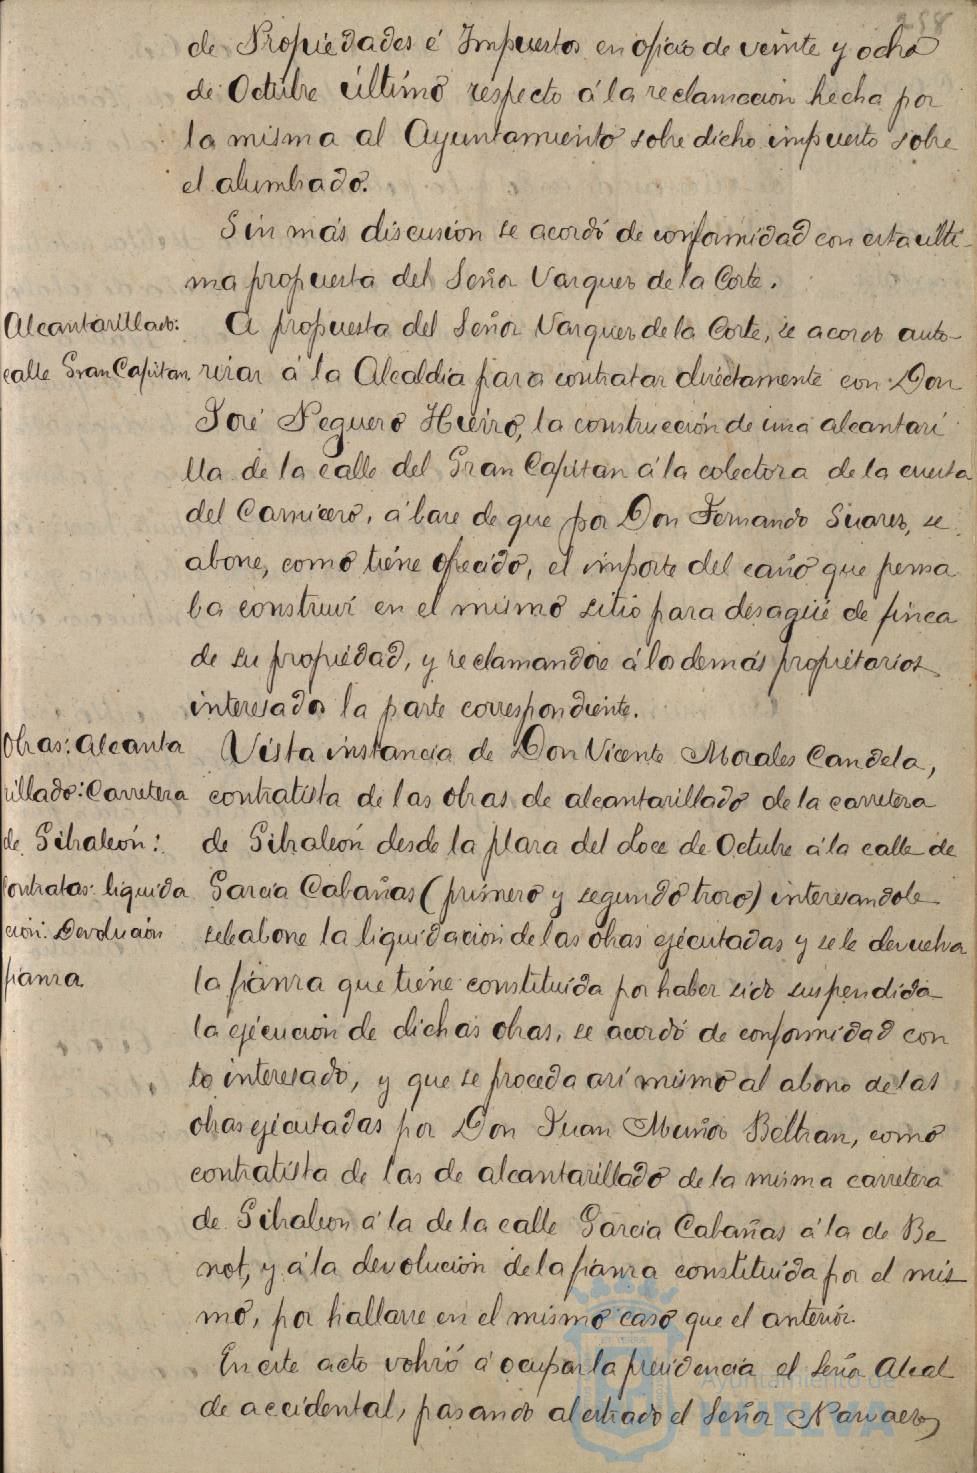 258
de Propiedades é Impuestos en oficio de veinte y ocho
de Octubre último respecto á la reclamacion hecha por
la misma al Ayuntamiento sobre dicho impuesto sobre
el alumbrado.
Sin más discusion se acordó de conformidad con esta últi-
ma propuesta del Señor Vazquez de la Corte.
Alcantarillado:
calle Gran Capitan
A propuesta del Señor Vazquez de la Corte, se acordó auto-
rizar á la Alcaldía para contratar directamente con Don
José Peguero Hierro, la construcción de una alcantari
lla de la calle del Gran Capitan á la colectora de la cuesta
del Carnicero, á base de que por Don Fernando Suarez, se
abone, como tiene ofrecido, el importe del caño que pensa
ba construir en el mismo sitio para desagüe de finca
de su propiedad, y reclamandose á los demás propietarios
interesados la parte correspondiente.
Obras: Alcanta
rillado: Carretera
de Gibraleón:
Contratas: liquida
ción: Devolución
fianza
Vista instancia de Don Vicente Morales Candela,
contratista de las obras de alcantarillado de la carretera
de Gibraleón desde la plaza del Doce de Octubre á la calle de
Garcia Cabañas (primero y segundo trozo) interesandole
se le abone la liquidacion de las obras ejecutadas y se le devuelva
la fianza que tiene constituida por haber sido suspendida
la ejecución de dichas obras, se acordó de conformidad con
lo interesado, y que se proceda así mismo al abono de las
obras ejecutadas por Don Juan Muñoz Beltran, como
contratista de las de alcantarillado de la misma carretera
de Gibraleon á la de la calle Garcia Cabañas á la de Be
not, y á la devolución de la fianza constituida por el mis
mo, por hallarse en el mismo caso que el anterior.
En este acto volvió á ocupar la presidencia el Señor Alcal
de accidental, pasando al estrado el Señor Narvaez
Ayuntamiento de
HUELVA